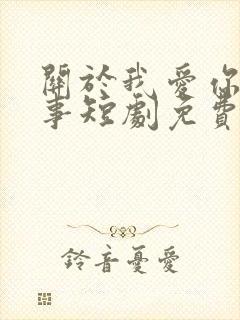 關於我愛你
事短劇免費
鈴音憂愛